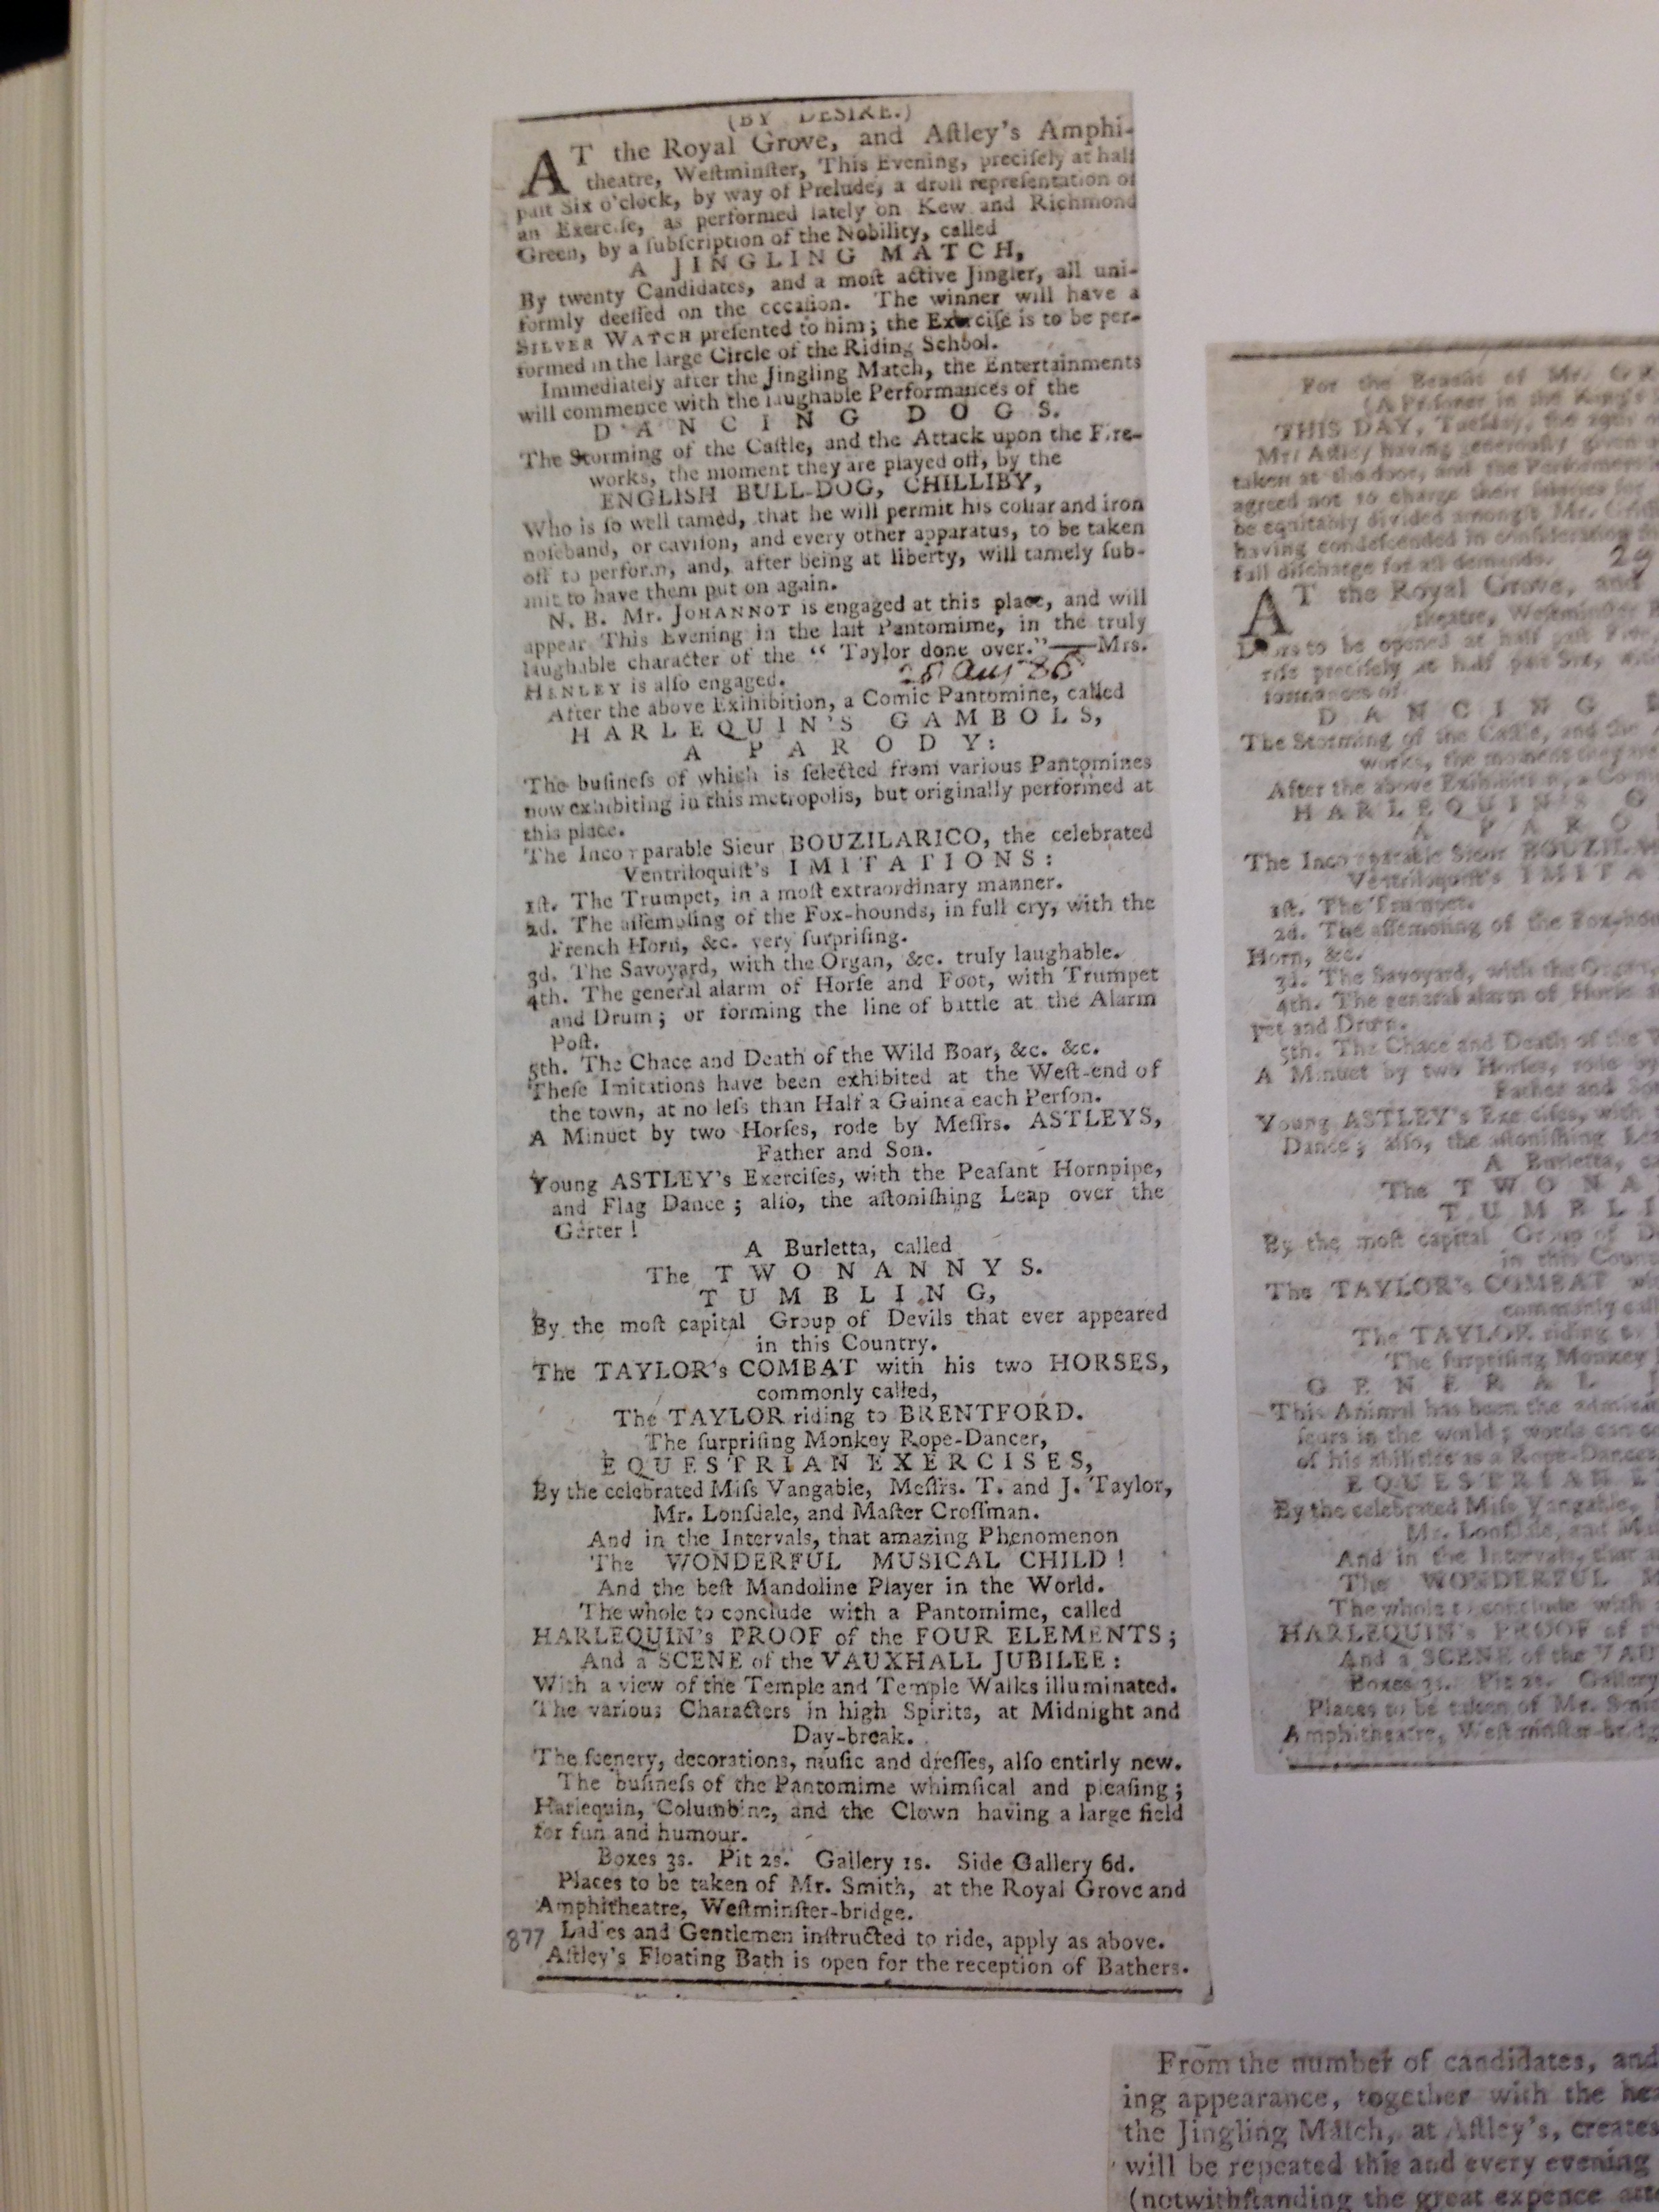 (BY DESIRE.)
AT the Royal Grove, and Aſtley's Amphi-
theatre, Weſtminſter, This Evening, preciſely at half
paſt Six o'clock, by way of Prelude, a droll repreſentation of
an Exerciſe, as performed lately on Kew and Richmond
Green, by a ſubſcription of the Nobility, called
A JINGLING MATCH,
By twenty Candidates, and a moſt active Jingler, all uni-
formly dreſſed on the occaſion. The winner will have a
SILVER WATCH preſented to him; the Exerciſe is to be per-
formed in the large Circle of the Riding School.
Immediately after the Jingling Match, the Entertainments
will commence with the laughable Performances of the
DANCING DOGS.
The Storming of the Caſtle, and the Attack upon the Fire-
works, the moment they are played off, by the
ENGLISH BULL-DOG, CHILLIBY,
Who is ſo well tamed, that he will permit his collar and iron
noſeband, or caviſon, and every other apparatus, to be taken
off to perform, and, after being at liberty, will tamely ſub-
mit to have them put on again.
N. B. Mr. JOHANNOT is engaged at this place, and will
appear This Evening in the laſt Pantomime, in the truly
laughable character of the "Taylor done over."—Mrs.
HENLEY is alſo engaged.
28 Aug 86
After the above Exihibition, a Comic Pantomine, called
HARLEQUIN'S GAMBOLS,
A PARODY:
The buſineſs of which is ſelected from various Pantomines
now exhibiting in this metropolis, but originally performed at
this place.
The Incomparable Sieur BOUZILARICO, the celebrated
Ventriloquiſt's IMITATIONS:
1ſt. The Trumpet, in a moſt extraordinary manner.
2d. The aſſembling of the Fox-hounds, in full cry, with the
French Horn, &c. very ſurpriſing.
3d. The Savoyard, with the Organ, &c. truly laughable.
4th. The general alarm of Horſe and Foot, with Trumpet
and Drum; or forming the line of battle at the Alarm
Poſt.
5th. The Chace and Death of the Wild Boar, &c. &c.
Theſe Imitations have been exhibited at the Weſt-end of
the town, at no leſs than Half a Guinea each Perſon.
A Minuet by two Horſes, rode by Meſſrs. ASTLEYS,
Father and Son.
Young ASTLEY's Exerciſes, with the Peaſant Hornpipe,
and Flag Dance; alſo, the aſtoniſhing Leap over the
Garter!
A Burletta, called
The TWO NANNYS.
TUMBLING,
By the moſt capital Group of Devils that ever appeared
in this Country.
The TAYLOR's COMBAT with his two HORSES,
commonly called,
The TAYLOR riding to BRENTFORD.
The ſurpriſing Monkey Rope-Dancer,
EQUESTRIAN EXERCISES,
By the celebrated Miſs Vangable, Meſſrs. T. and J. Taylor,
Mr. Lonſdale, and Maſter Croſſman.
And in the Intervals, that amazing Phenomenon
The WONDERFUL MUSICAL CHILD!
And the beſt Mandoline Player in the World.
The whole to conclude with a Pantomime, called
HARLEQUIN's PROOF of the FOUR ELEMENTS;
And a SCENE of the VAUXHALL JUBILEE:
With a view of the Temple and Temple Walks illuminated.
The various Characters in high Spirits, at Midnight and
Day-break.
The ſcenery, decorations, muſic and dreſſes, alſo entirly new.
The buſineſs of the Pantomime whimſical and pleaſing;
Harlequin, Columbine, and the Clown having a large field
for fun and humour.
Boxes 3s. Pit 2s. Gallery 1s. Side Gallery 6d.
Places to be taken of Mr. Smith, at the Royal Grove and
Amphitheatre, Weſtminſter-bridge.
877
Ladies and Gentlemen inſtructed to ride, apply as above.
Aſtley's Floating Bath is open for the reception of Bathers.
For the Benefit of Mr.
(A Priſoner in the King's
THIS DAY, Tueſday, the 29th
Mr. Aſtley having generouſly given
taken at the door, and the Performers
agreed not to charge their ſalaries for
be equitably divided amongſt Mr.
having condeſcended in conſideration
full diſcharge for all demands. 29
AT the Royal Grove, and
theatre, Weſtminſter
Doors to be opened at half paſt Five,
riſe preciſely at half paſt Six,
formances of
DANCING
The Storming of the Caſtle, and the
works, the moment they are
After the above Exhibition, a Com
HARLEQUIN'S G
A PARO
The Incomparable Sieur BOUZILA
Ventriloquiſt's IMITA
1ſt. The Trumpet.
2d. The aſſembling of the Fox-hou
Horn, &c.
3d. The Savoyard, with the Organ,
4th. The general alarm of Horſe
pet and Drum.
5th. The Chace and Death of the
A Minuet by two Horſes, rode by
Father and So
Young ASTLEY's Exerciſes, with
Dance; alſo, the aſtoniſhing Lea
A Burletta, ca
The TWO NA
TUMBLI
By the moſt capital Group of De
in this Coun
The TAYLOR's COMBAT wi
commonly call
The TAYLOR riding to
The ſurpriſing Monkey
GENERAL J
This Animal has been the admirat
ſeurs in the world; words can
of his abilities as a Rope-Dancer
EQUESTRIAN E
By the celebrated Miſs Vangable,
Mr. Lonſdale, and Ma
And in the Intervals, that
The WONDERFUL M
The whole to conclude with
HARLEQUIN's PROOF of
And a SCENE of the VAU
Boxes 3s. Pit 2s. Gallery
Places to be taken of Mr. Smi
Amphitheatre, Weſtminſter-bridg
From the number of candidates, and
ing appearance, together with the
the Jingling Match, at Aſtley's, creates
will be repeated this and every evening
(notwithſtanding the great expence